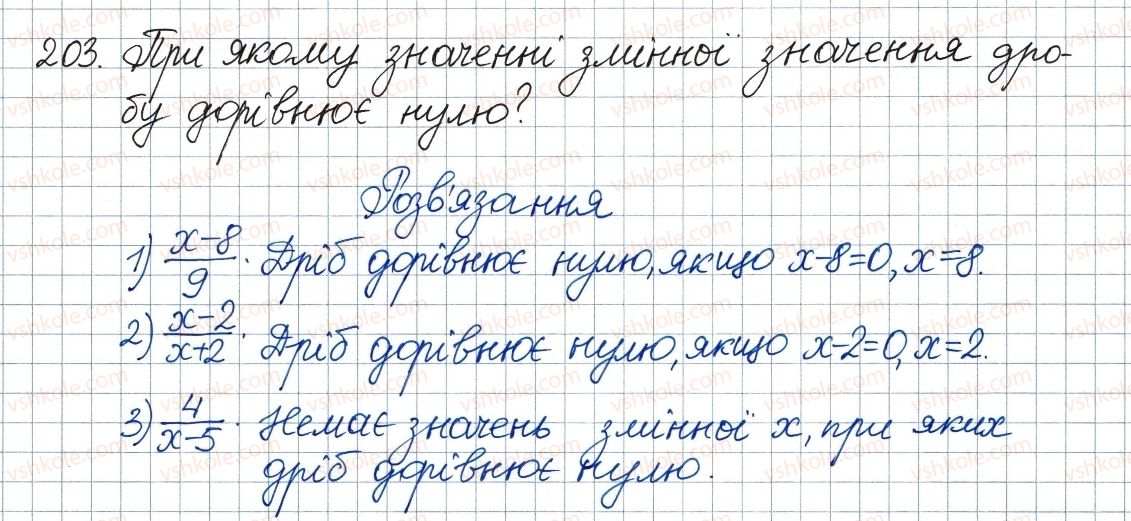 203. При якому значенні змінної значення дро-
бу дорівнює нулю?
Розв'язання
1) x-8/9. Дріб дорівнює нулю, якщо x-8=0, x=8.
2) x-2/x+2. Дріб дорівнює нулю, якщо x-2=0, x=2.
3) 4/x-5. Немає значень змінної x, при яких
дріб дорівнює нулю.